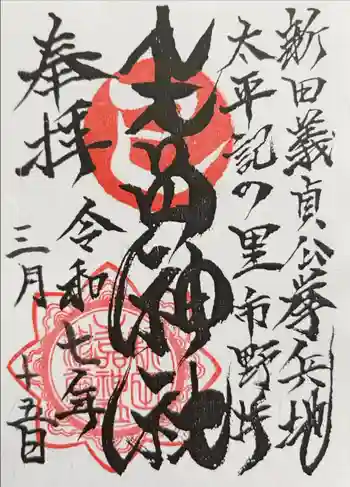 新田義貞公挙兵地
太平記の里 市野井
生品神社
奉拝
令和七年
三月十五日